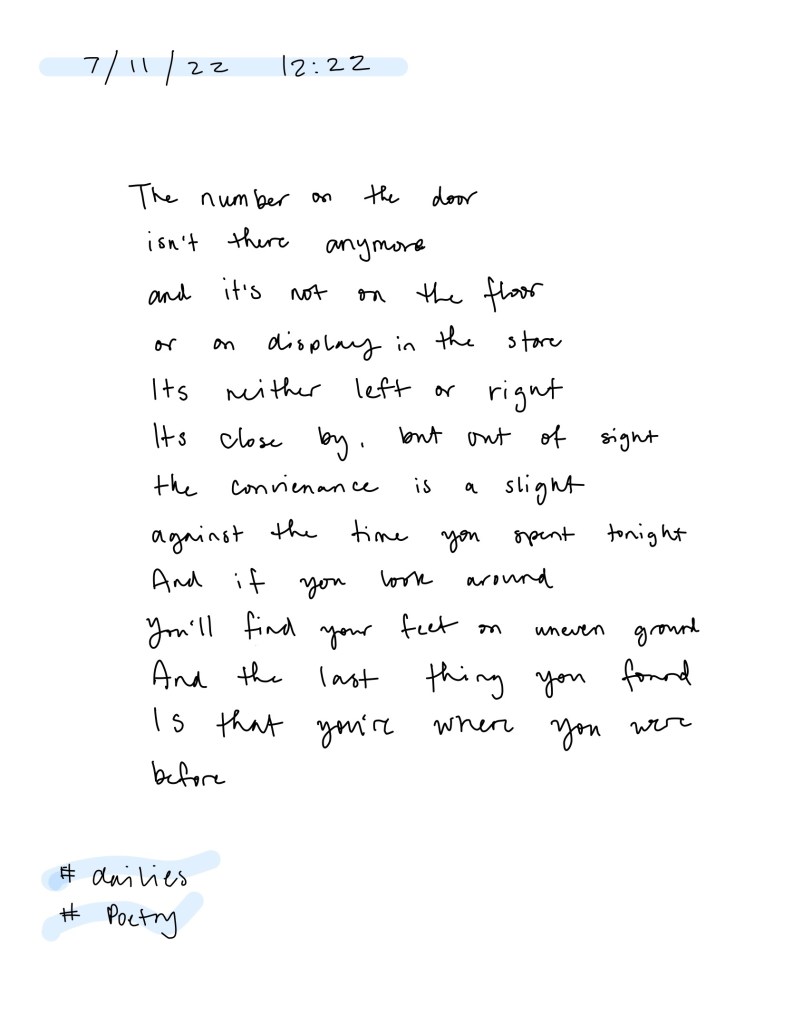 7/11/22 12:22
The number on the door
isn't there anymore
and it's not on the floor
or on display in the store
Its neither left or right
Its close by, but out of sight
the convienance is a slight
against the time you spent tonight
And if you look around
You'll find your feet on uneven ground
And the last thing you found
Is that you're where you were
before
# dailies
# Poetry